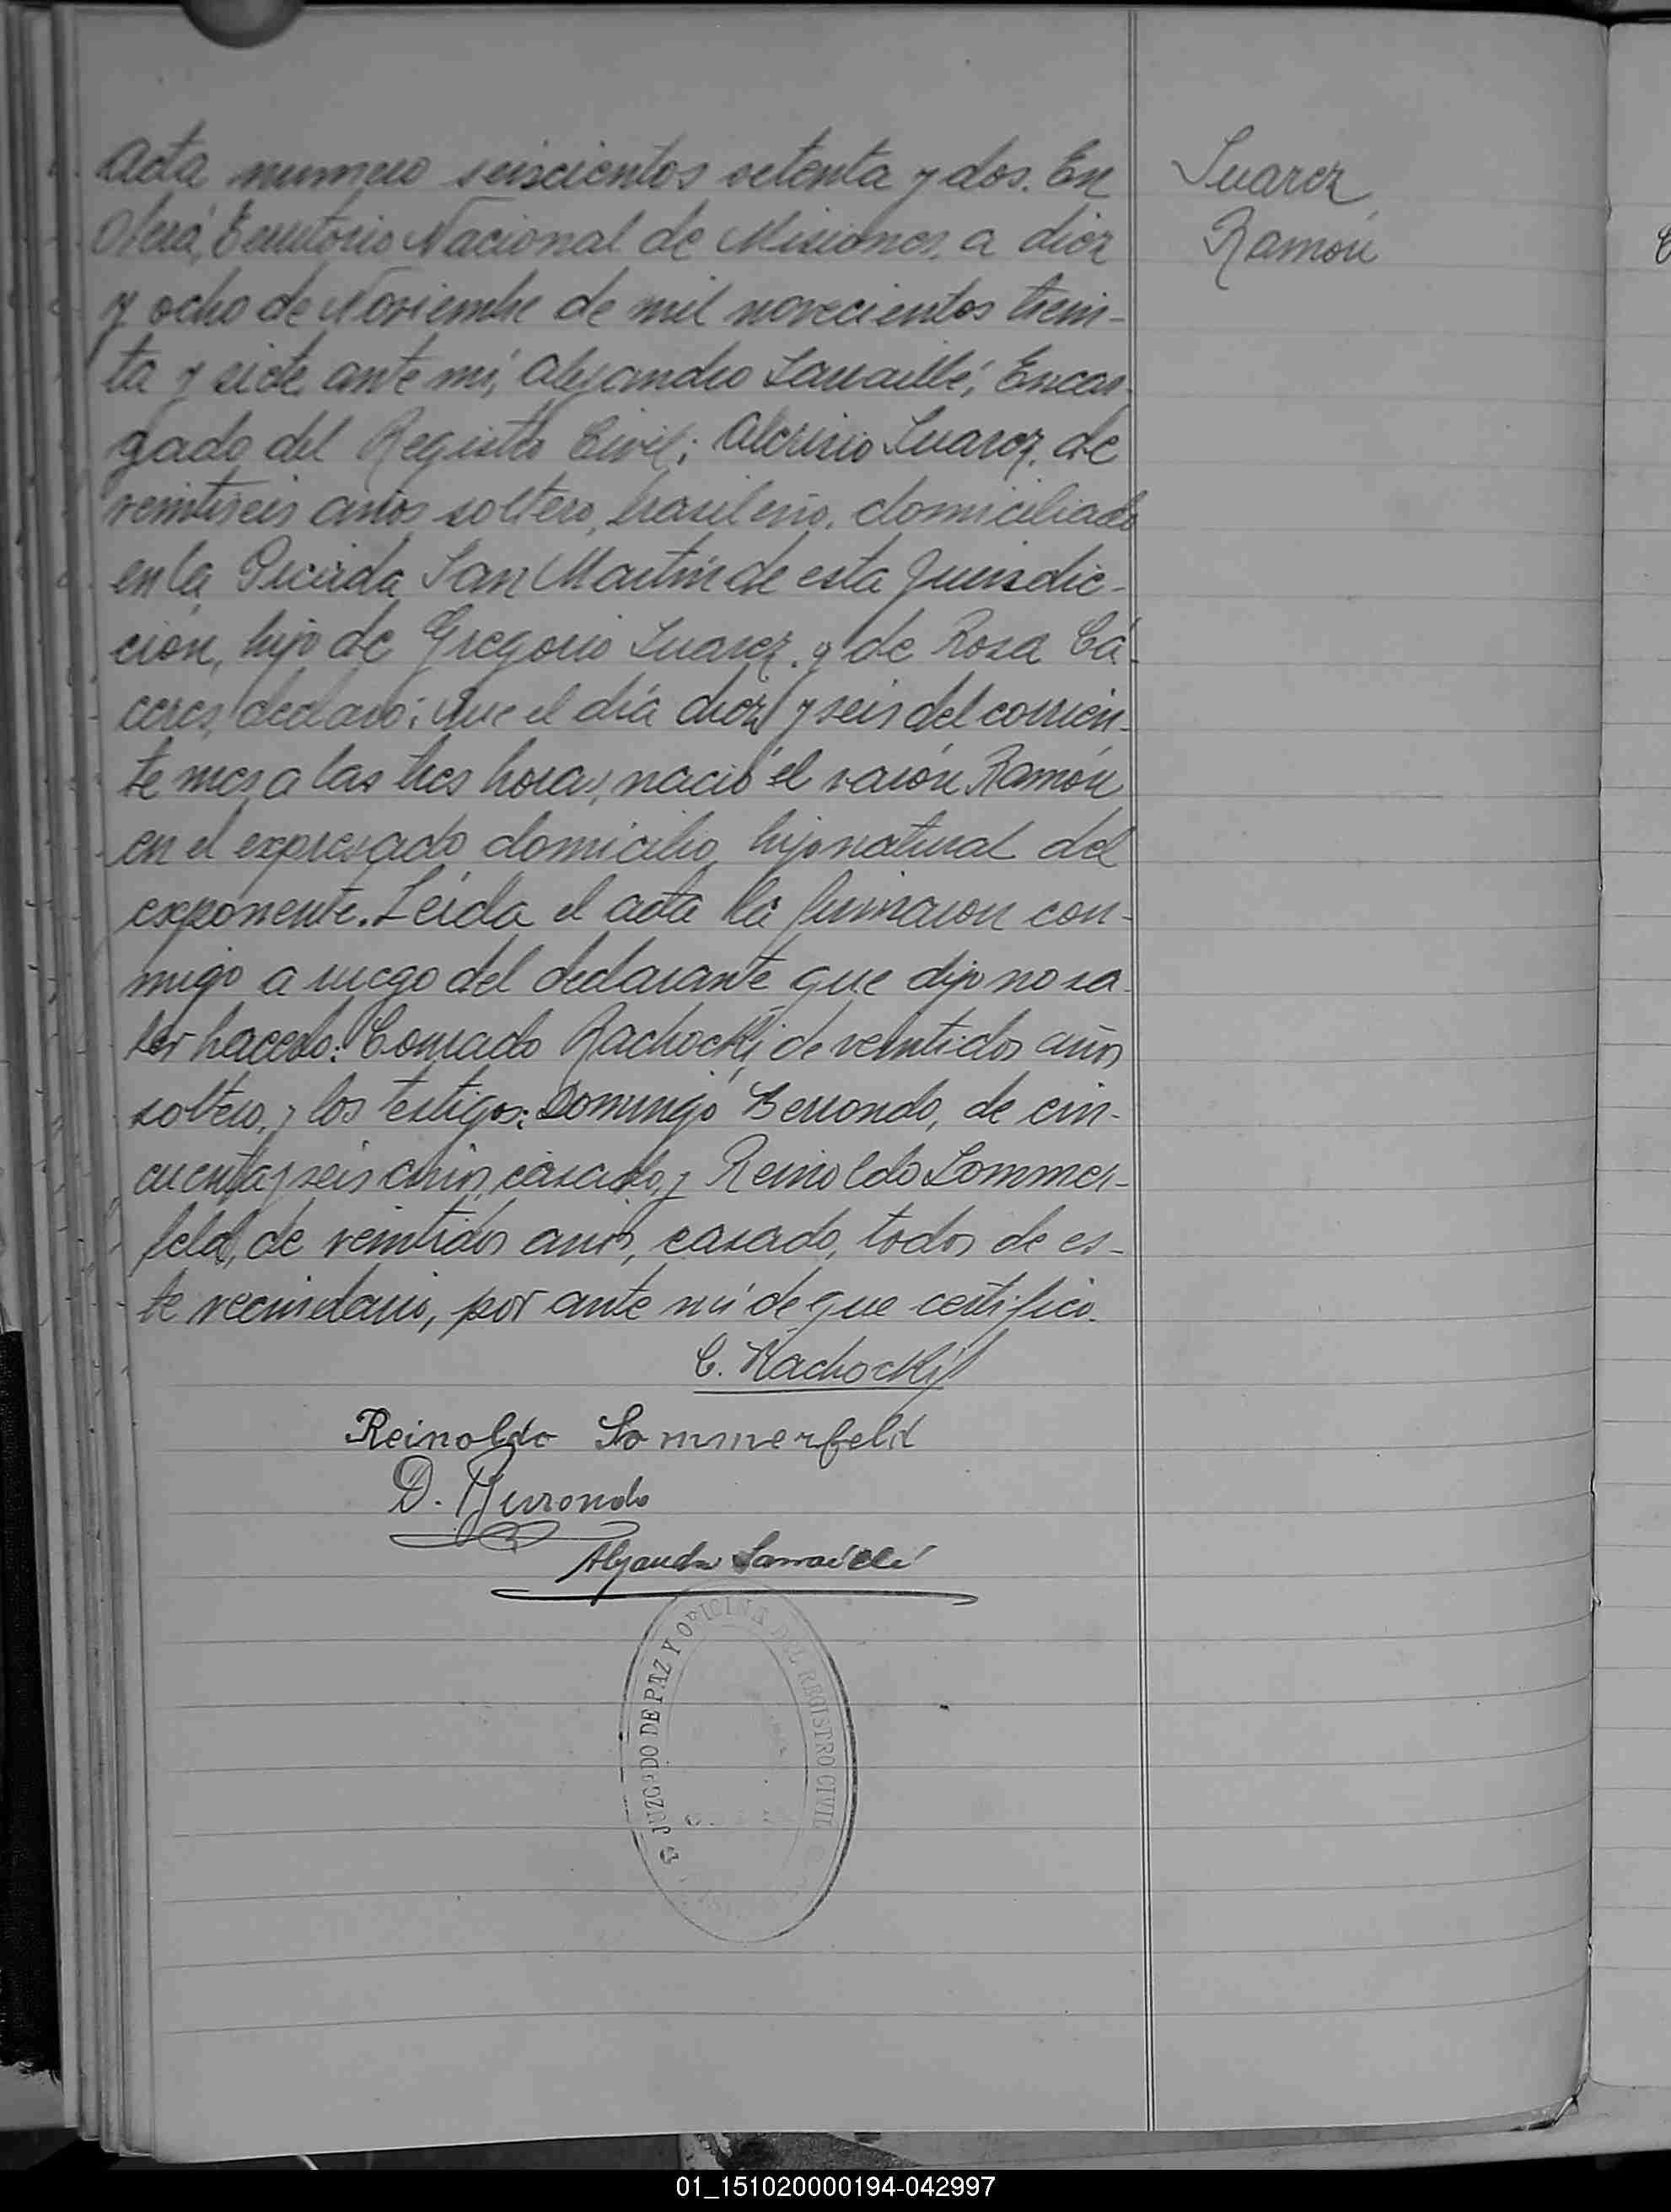 Acta numero seiscientos setenta y dos. En
Oberá, Territorio Nacional de Misiones, a diez
y ocho de Noviembre de mil novecientos trein-
ta y siete, ante mí, Alejandro Sarraillé, Encar-
gado del Registro Civil: Suarez, de
veintiseis años soltero, brasileño, domiciliado
en la Picada San Martín de esta Jurisdic-
ción, hijo de Gregorio Suarez y de Rosa Cá-
ceres, declaró: Que el día diez y seis del corrien-
te mes, a las tres horas, nació el varón Ramón
en el expresado domicilio, hijo natural del
exponente. Leída el acta la firmaron con-
migo a ruego del declarante que dijo no sa-
ber hacerlo: Conrado Rachockij de veintidos años
soltero, y los testigos: Domingo Berrondo, de cin-
cuenta y seis años, casado, y Reinoldo Sommer-
feld, de veintidos años, casado, todos de es-
te vecindario, por ante mí de que certifico.
C. Rachockij
Reinoldo Sommerfeld
D. Berrondo
Alejandro Sarraillé
JUZGADO DE PAZ Y OFICINA DEL REGISTRO CIVIL
Suarez,
Ramón
01_151020000194-042997